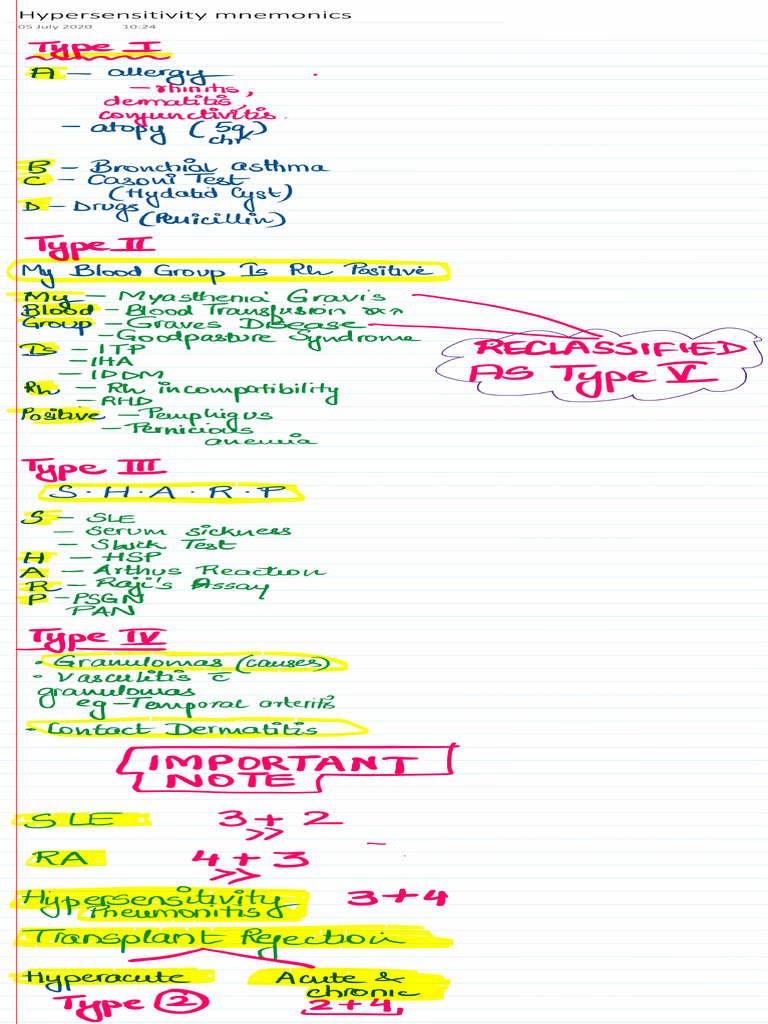 Hypersensitivity mnemonics
05 July 2020 10:24
Type I
A - allergy
- rhinitis,
dermatitis,
conjunctivitis.
- atopy (5q)
chr
B - Bronchial asthma
C - Casoni Test
(Hydatid Cyst)
D - Drugs
(Penicillin)
Type II
My Blood Group Is Rh Positive
My - Myasthenia Gravis
Blood - Blood Transfusion rxn
Group - Graves Disease
- Goodpasture Syndrome
RECLASSIFIED
AS Type V
Is - ITP
- IHA
- IDDM
Rh - Rh incompatibility
- RHD
Positive - Pemphigus
- Pernicious
anemia
Type III
S.H.A.R.P
S - SLE
- Serum sickness
- Shick Test
H - HSP
A - Arthus Reaction
R - Raji's Assay
P - PSGN
PAN
Type IV
• Granulomas (causes)
• Vasculitis c̄
granulomas
eg - Temporal arteritis
• Contact Dermatitis
IMPORTANT
NOTE
SLE 3 + 2
>>
RA 4 + 3
>>
Hypersensitivity 3 + 4
Pneumonitis
Transplant Rejection
Hyperacute Acute &
chronic
Type 2 2 + 4,